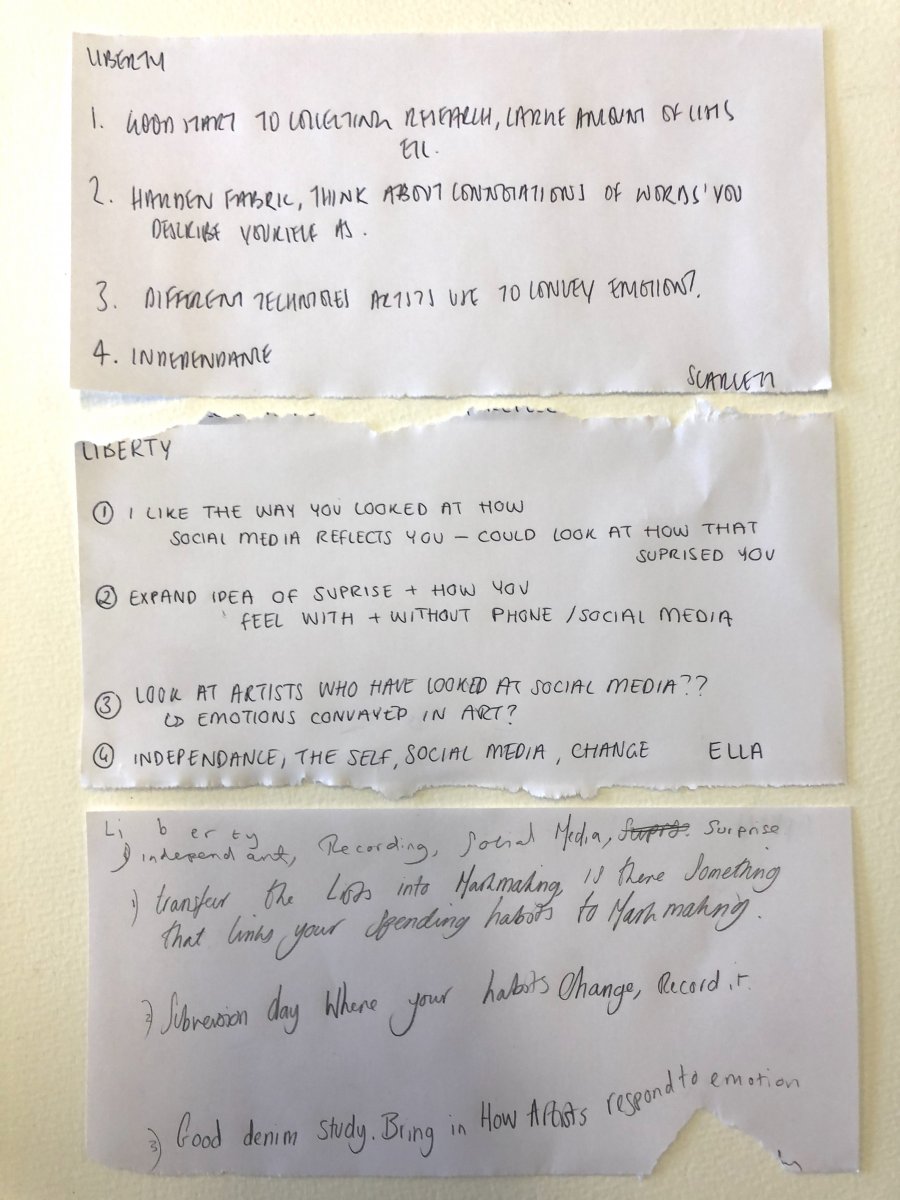 LIBERTY
1. GOOD START TO COLLECTING RESEARCH, LARGE AMOUNT OF LISTS
ETC.
2. HARDEN FABRIC, THINK ABOUT CONNOTATIONS OF WORDS YOU
DESCRIBE YOURSELF AS.
3. DIFFERENT TECHNIQUES ARTISTS USE TO CONVEY EMOTION?
4. INDEPENDANCE
SCARLETT
LIBERTY
① I LIKE THE WAY YOU LOOKED AT HOW
SOCIAL MEDIA REFLECTS YOU – COULD LOOK AT HOW THAT
SUPRISED YOU
② EXPAND IDEA OF SUPRISE + HOW YOU
FEEL WITH + WITHOUT PHONE / SOCIAL MEDIA
③ LOOK AT ARTISTS WHO HAVE LOOKED AT SOCIAL MEDIA??
↳ EMOTIONS CONVAYED IN ART?
④ INDEPENDANCE, THE SELF, SOCIAL MEDIA, CHANGE ELLA
Liberty
1) independant, Recording, Social Media, Surprise
1) transfer the Lists into Markmaking, is there Something
that links your Spending habots to Mark making.
2) Subversion day Where your habots Change, Record it.
3) Good denim study. Bring in How Artists respond to emotion